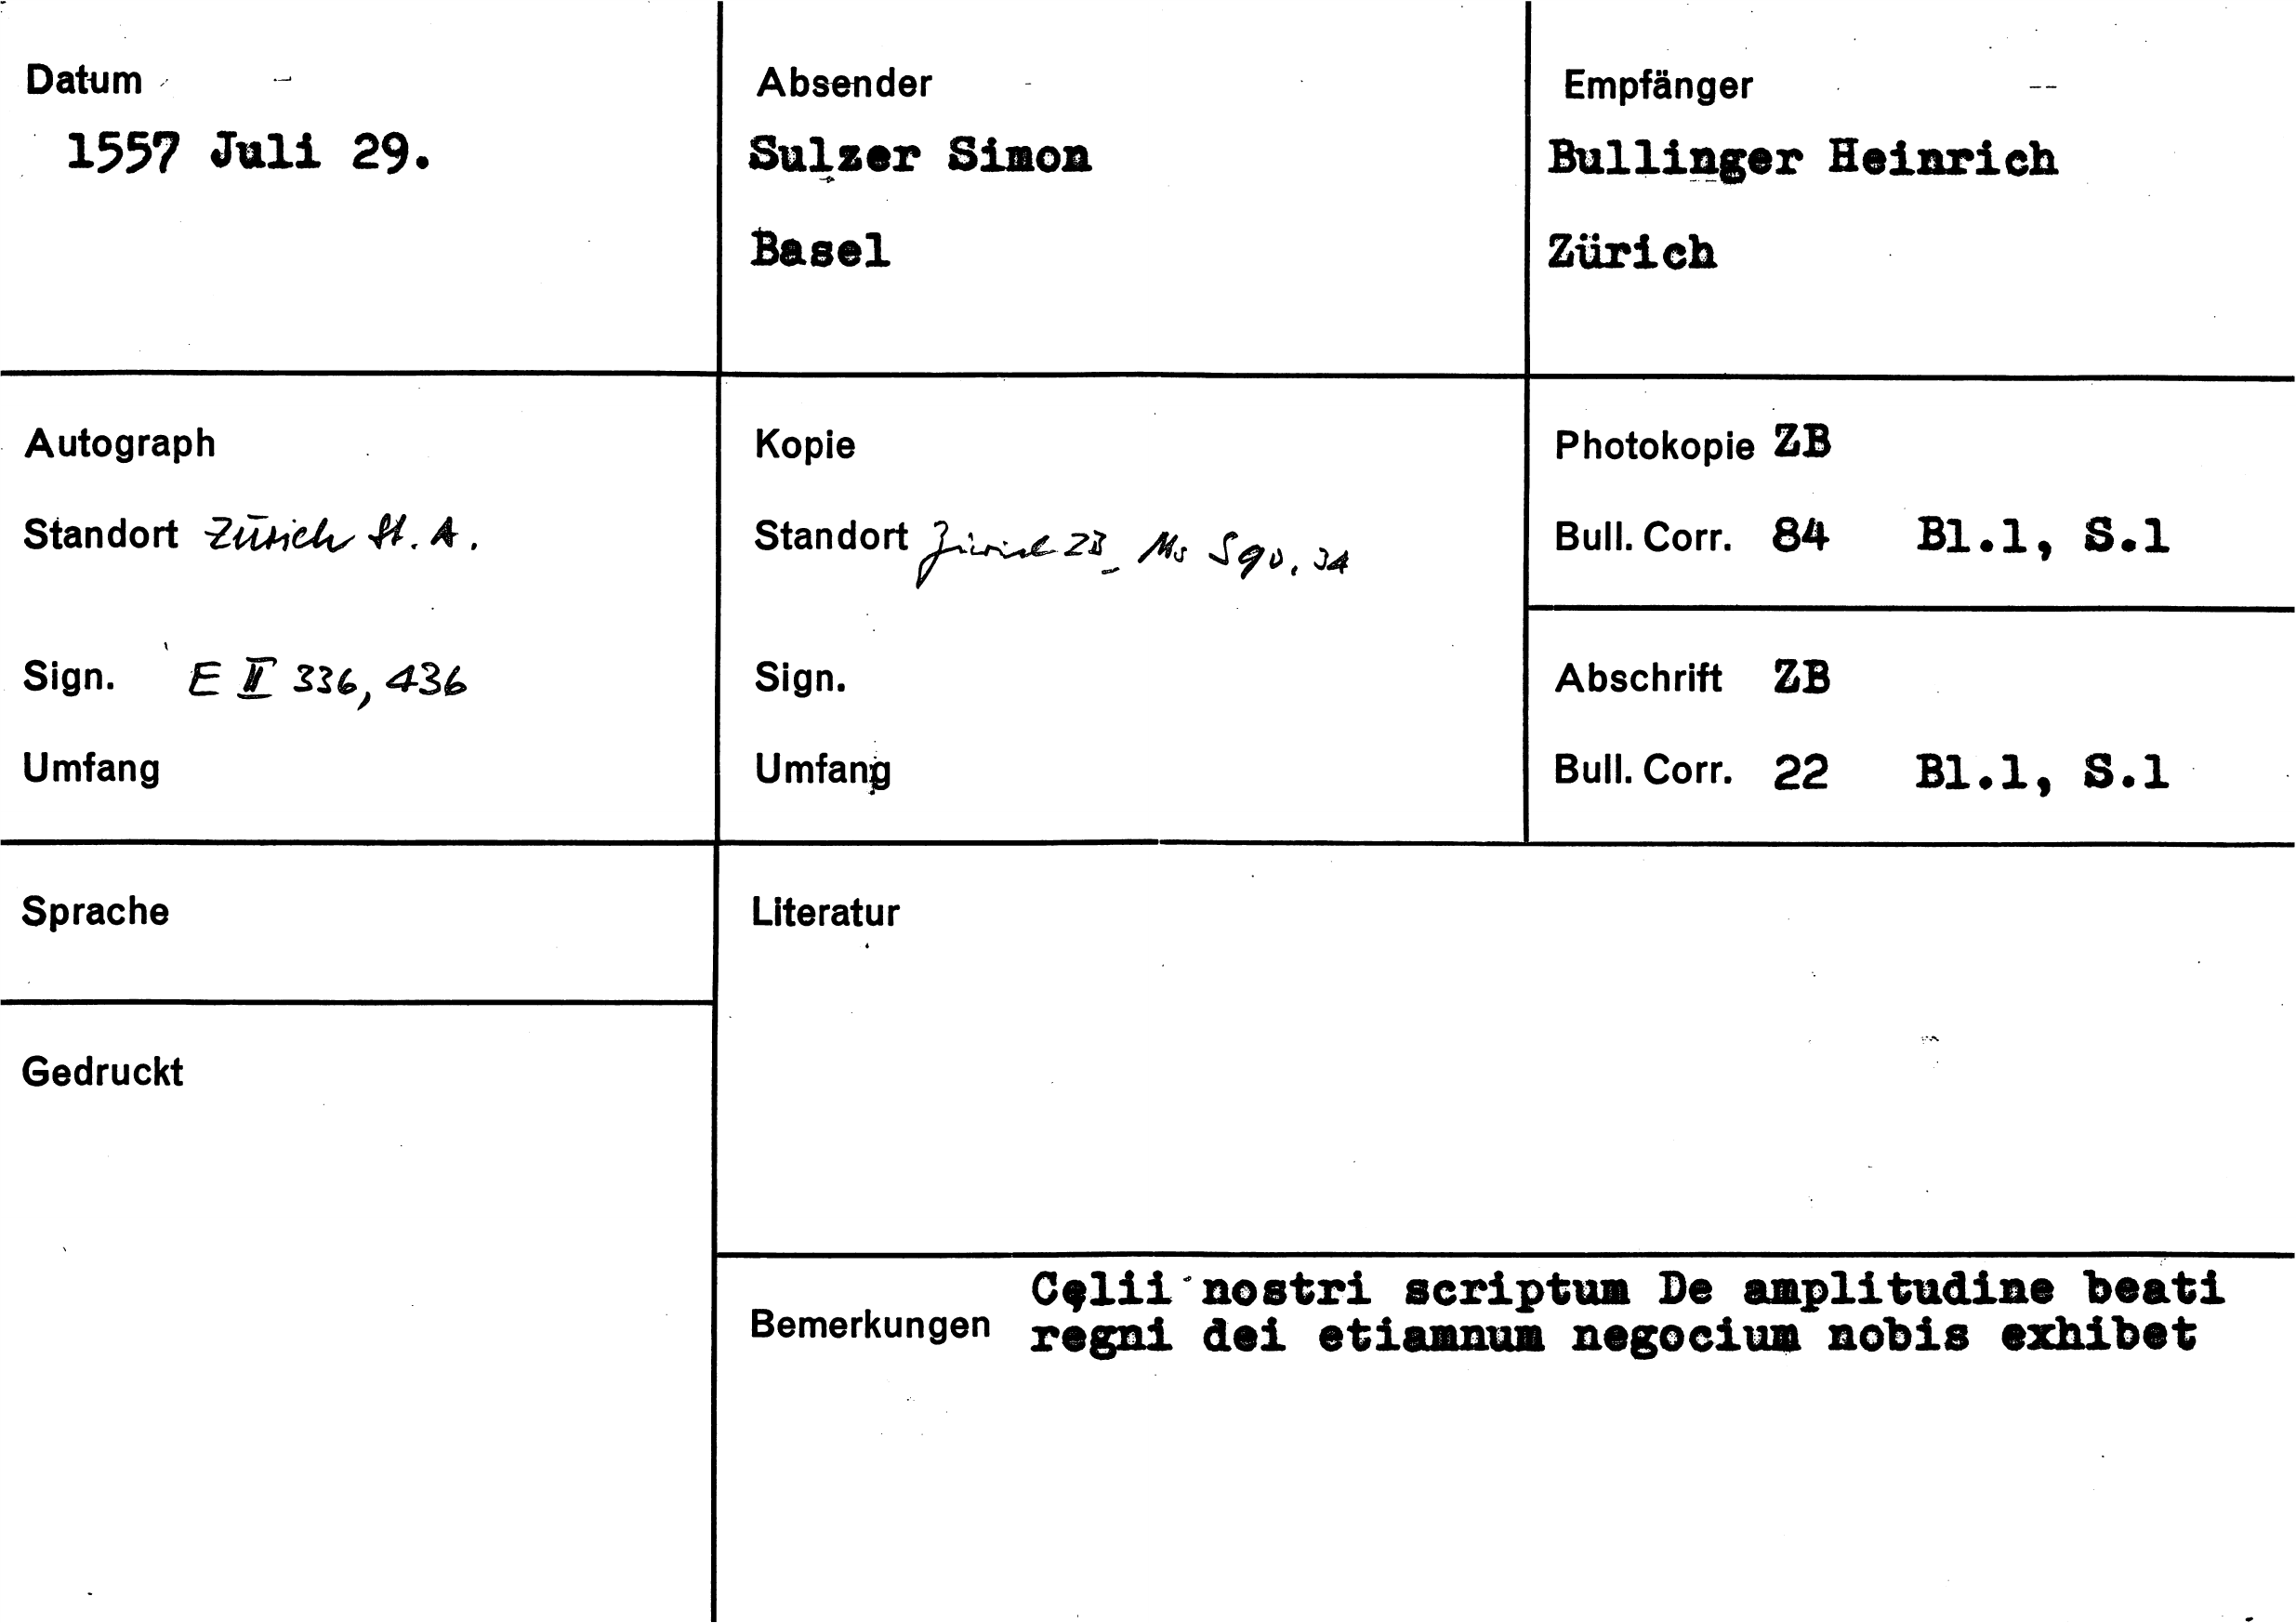 Datum
1557 Juli 29.
Absender
Sulzer Simon
Basel
Empfänger
Bullinger Heinrich
Zürich
Autograph
Standort Zürich St. A.
Sign. E II 336, 436
Umfang
Kopie
Standort Zürich ZB, Ms S 90, 34
Sign.
Umfang
Photokopie ZB
Bull. Corr. 84 Bl.1, S.1
Abschrift ZB
Bull. Corr. 22 Bl.1, S.1
Sprache
Literatur
Gedruckt
Bemerkungen
Cęlii nostri scriptum De amplitudine beati
regni dei etiamnum negocium nobis exhibet